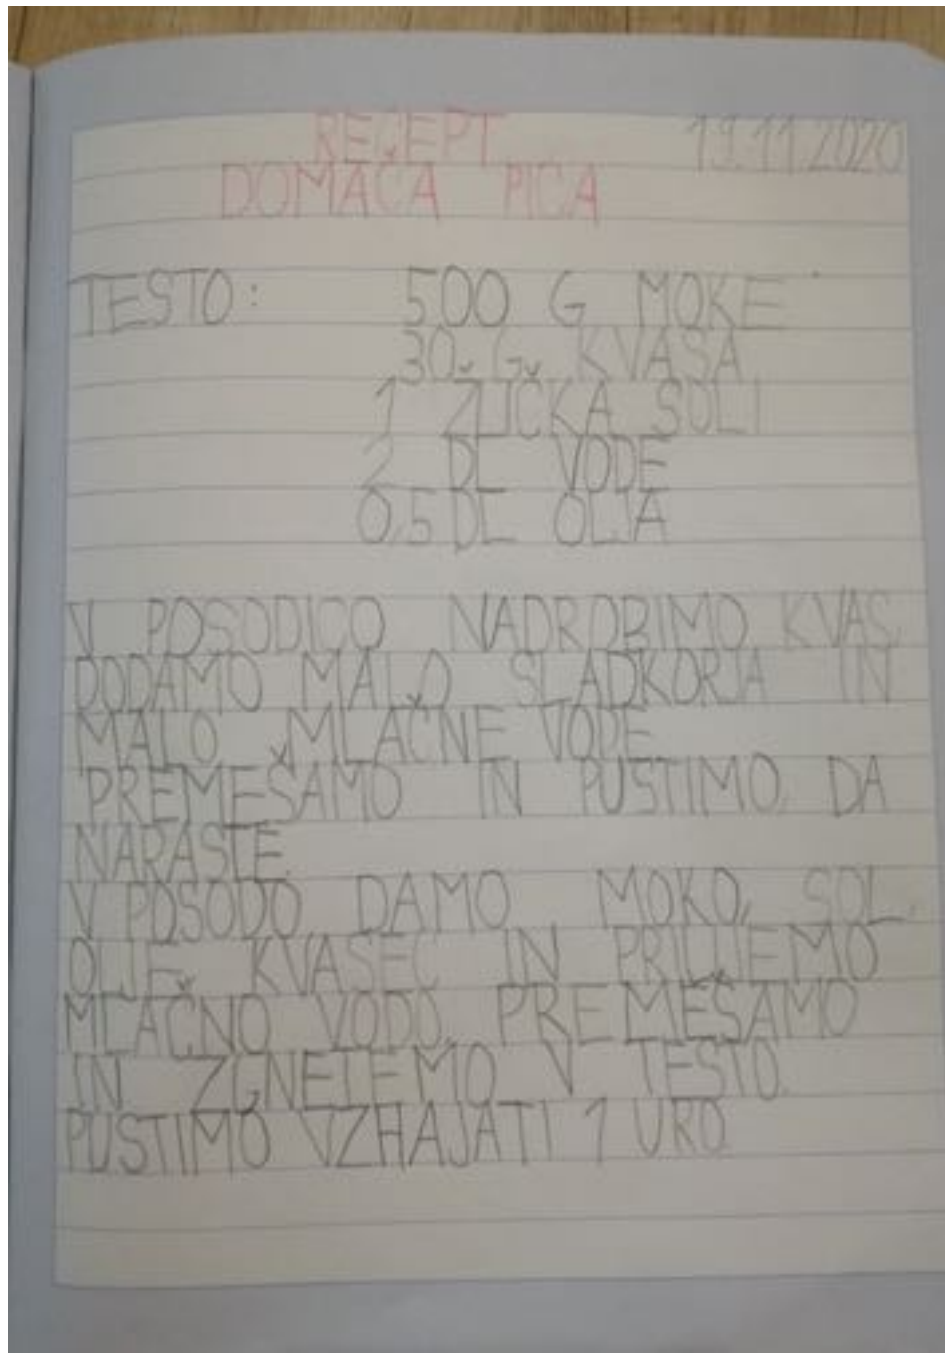 RECEPT 19.11.2020
DOMAČA PICA
TESTO: 500 G MOKE
30 G KVASA
1 ŽLIČKA SOLI
2 DL VODE
0,5 DL OLJA
V POSODICO NADROBIMO KVAS,
DODAMO MALO SLADKORJA IN
MALO MLAČNE VODE.
PREMEŠAMO IN PUSTIMO, DA
NARASTE.
V POSODO DAMO MOKO, SOL,
OLJE, KVASEC IN PRILIJEMO
MLAČNO VODO. PREMEŠAMO
IN ZGNETEMO V TESTO.
PUSTIMO VZHAJATI 1 URO.